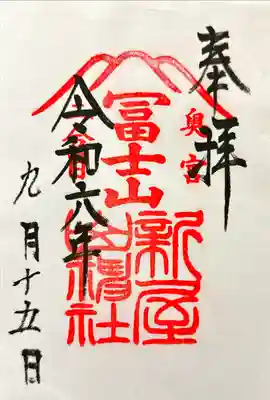 奉拝
奥宮
冨士山
新屋
山神社
令和六年
九月十五日